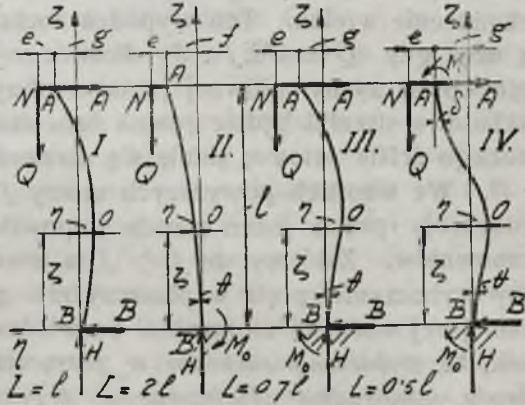 ζ ζ ζ ζ
e g e f e g e g
M
N A A N A N A A N A A
δ
I II III. IV.
Q Q Q Q
l
η O η O η O η O
ζ ζ ζ ζ
ϑ ϑ ϑ
B B B B B B B
η H H M₀ M₀ H M₀ H
L = l L = 2l L = 0,7l L = 0,5l